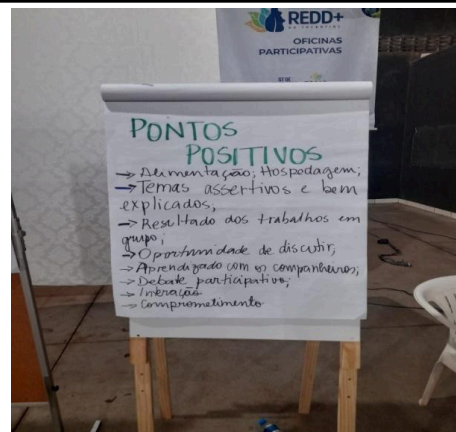 REDD+
OFICINAS
PARTICIPATIVAS
PONTOS
POSITIVOS
→ Alimentação; Hospedagem;
→ Temas assertivos e bem
explicados;
→ Resultado dos trabalhos em
grupo;
→ Oportunidade de discutir;
→ Aprendizado com os companheiros;
→ Debate participativo;
→ Interação
→ Comprometimento